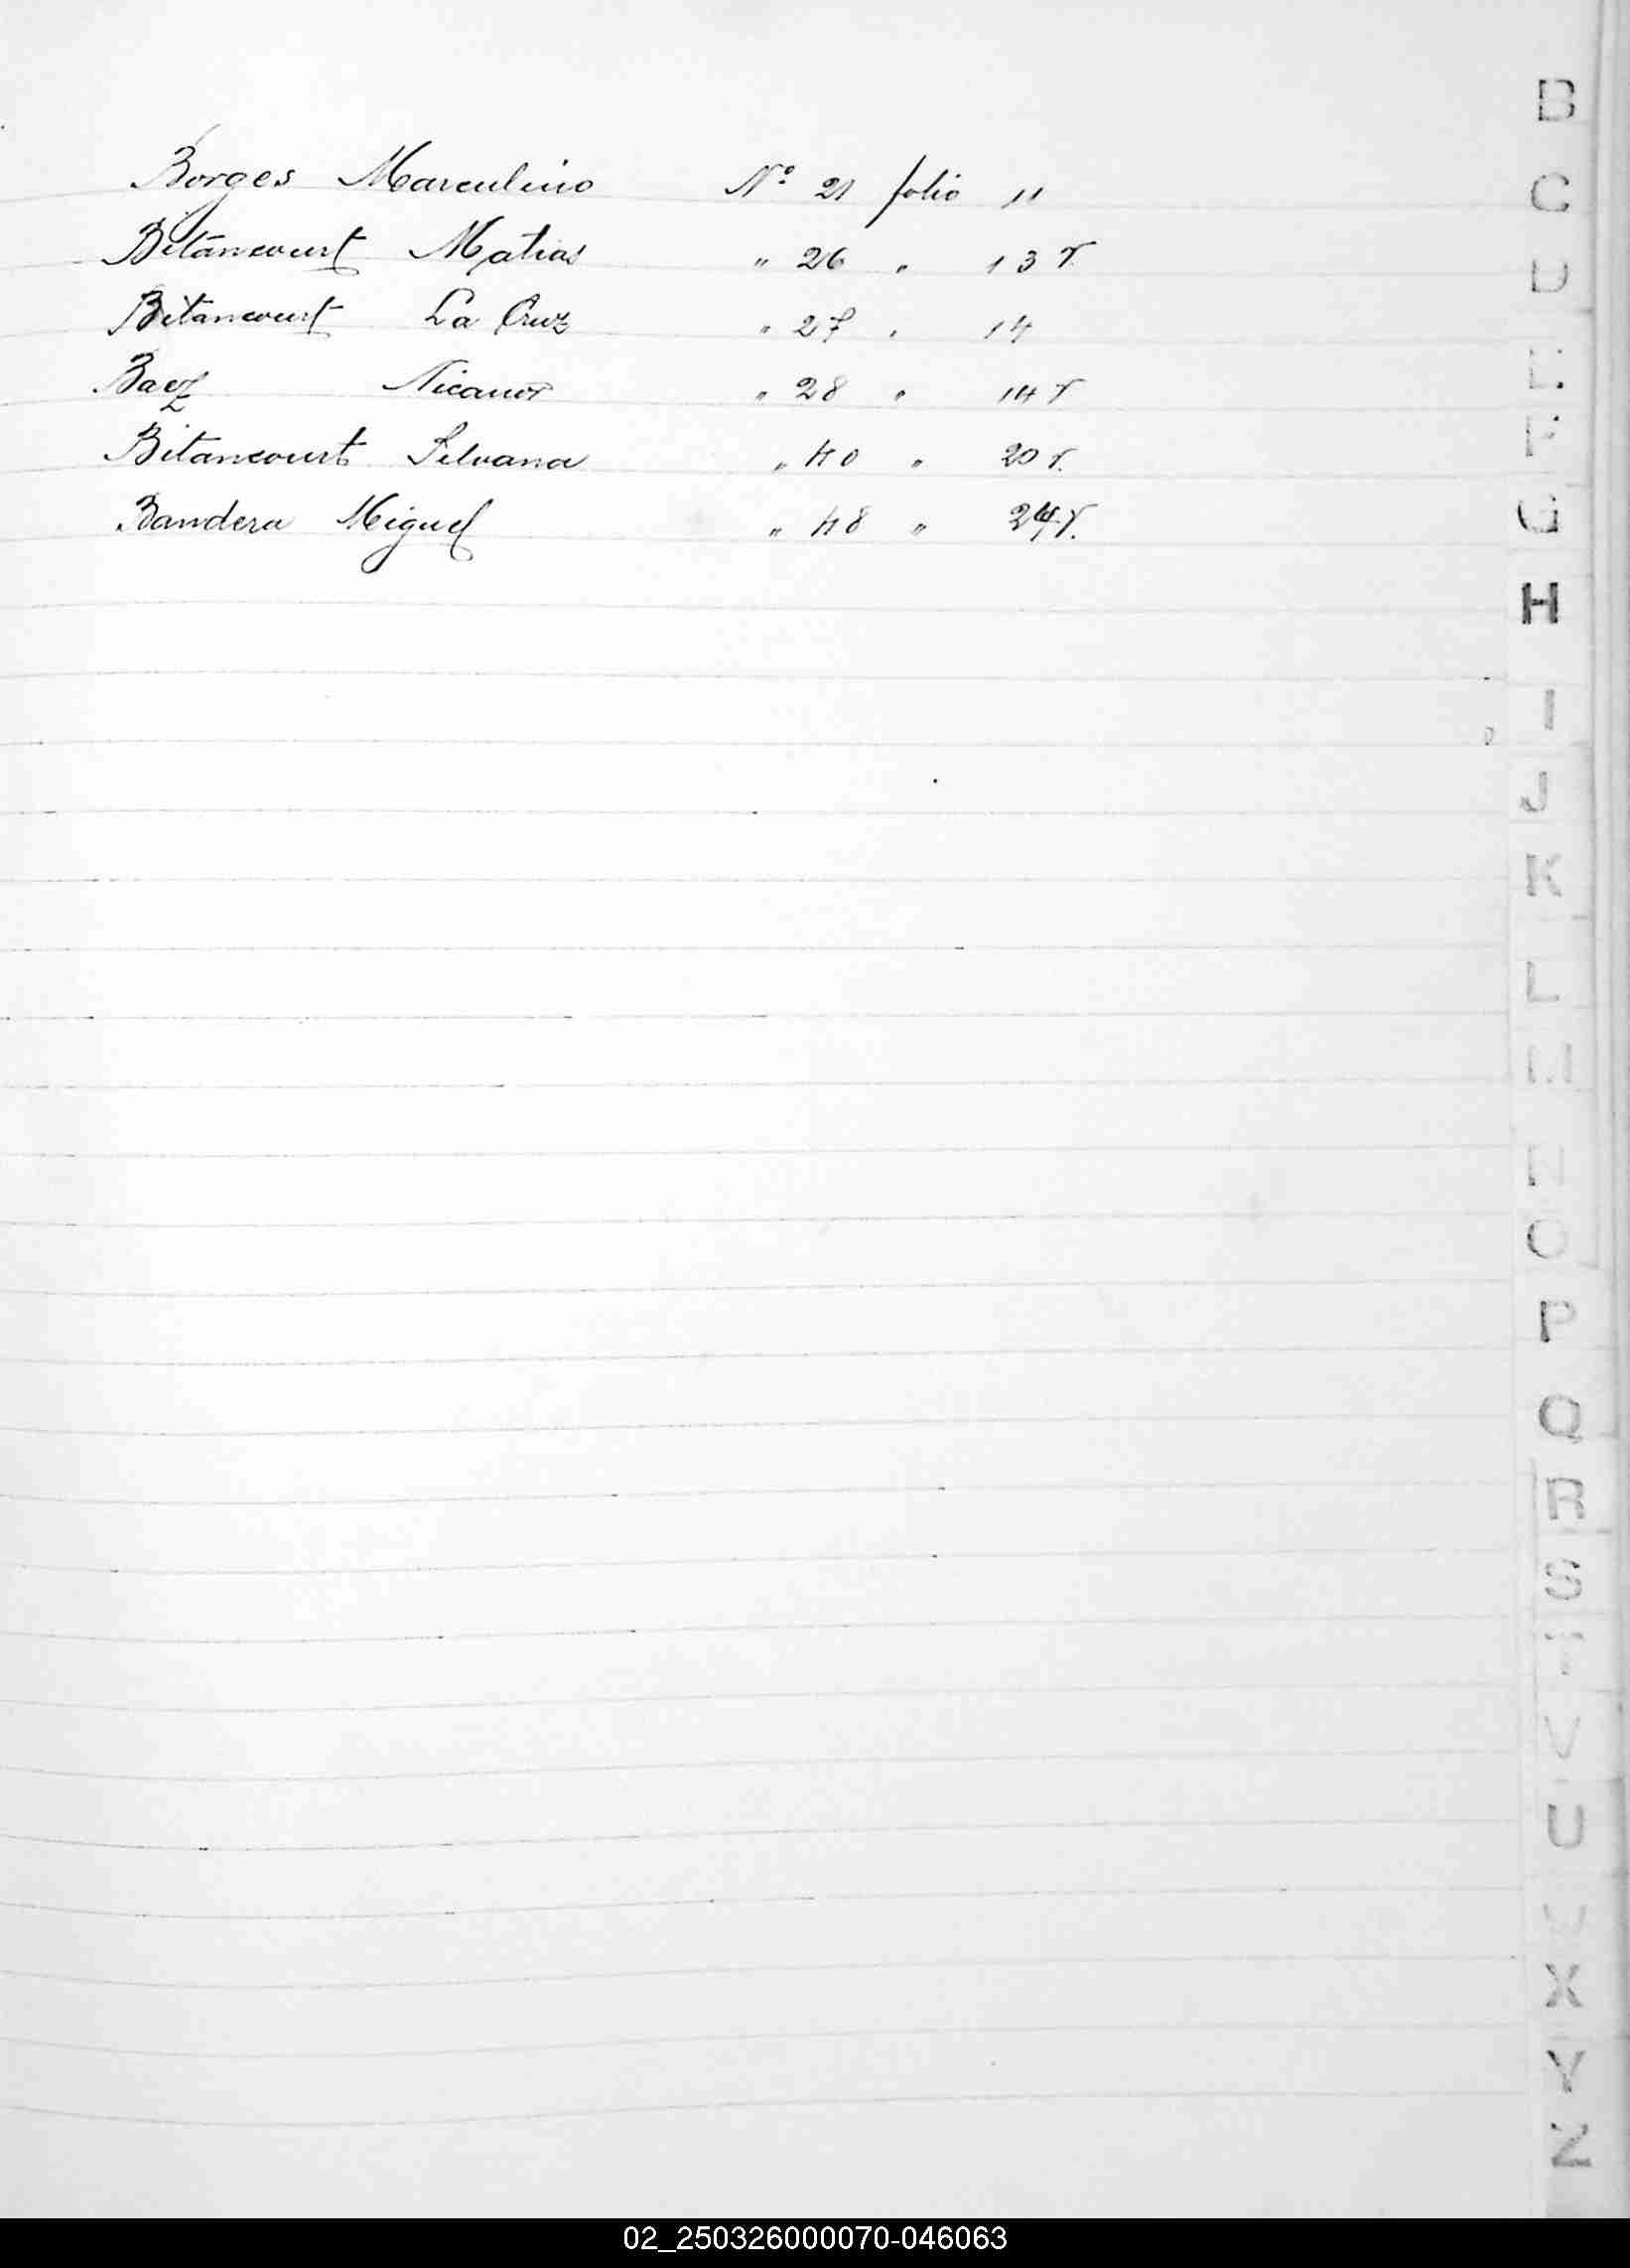 Borges Marculino Nº 21 folio 11
Betancourt Matias " 26 " 13 v
Bitancourt La Cruz " 27 " 14
Baez Nicanor " 28 " 14 v
Bitancourt Silvana " 40 " 20 v.
Bandera Miguel " 48 " 24 v.
B
C
D
E
F
G
H
I
J
K
L
M
N
O
P
Q
R
S
T
V
U
X
Y
Z
02_250326000070-046063